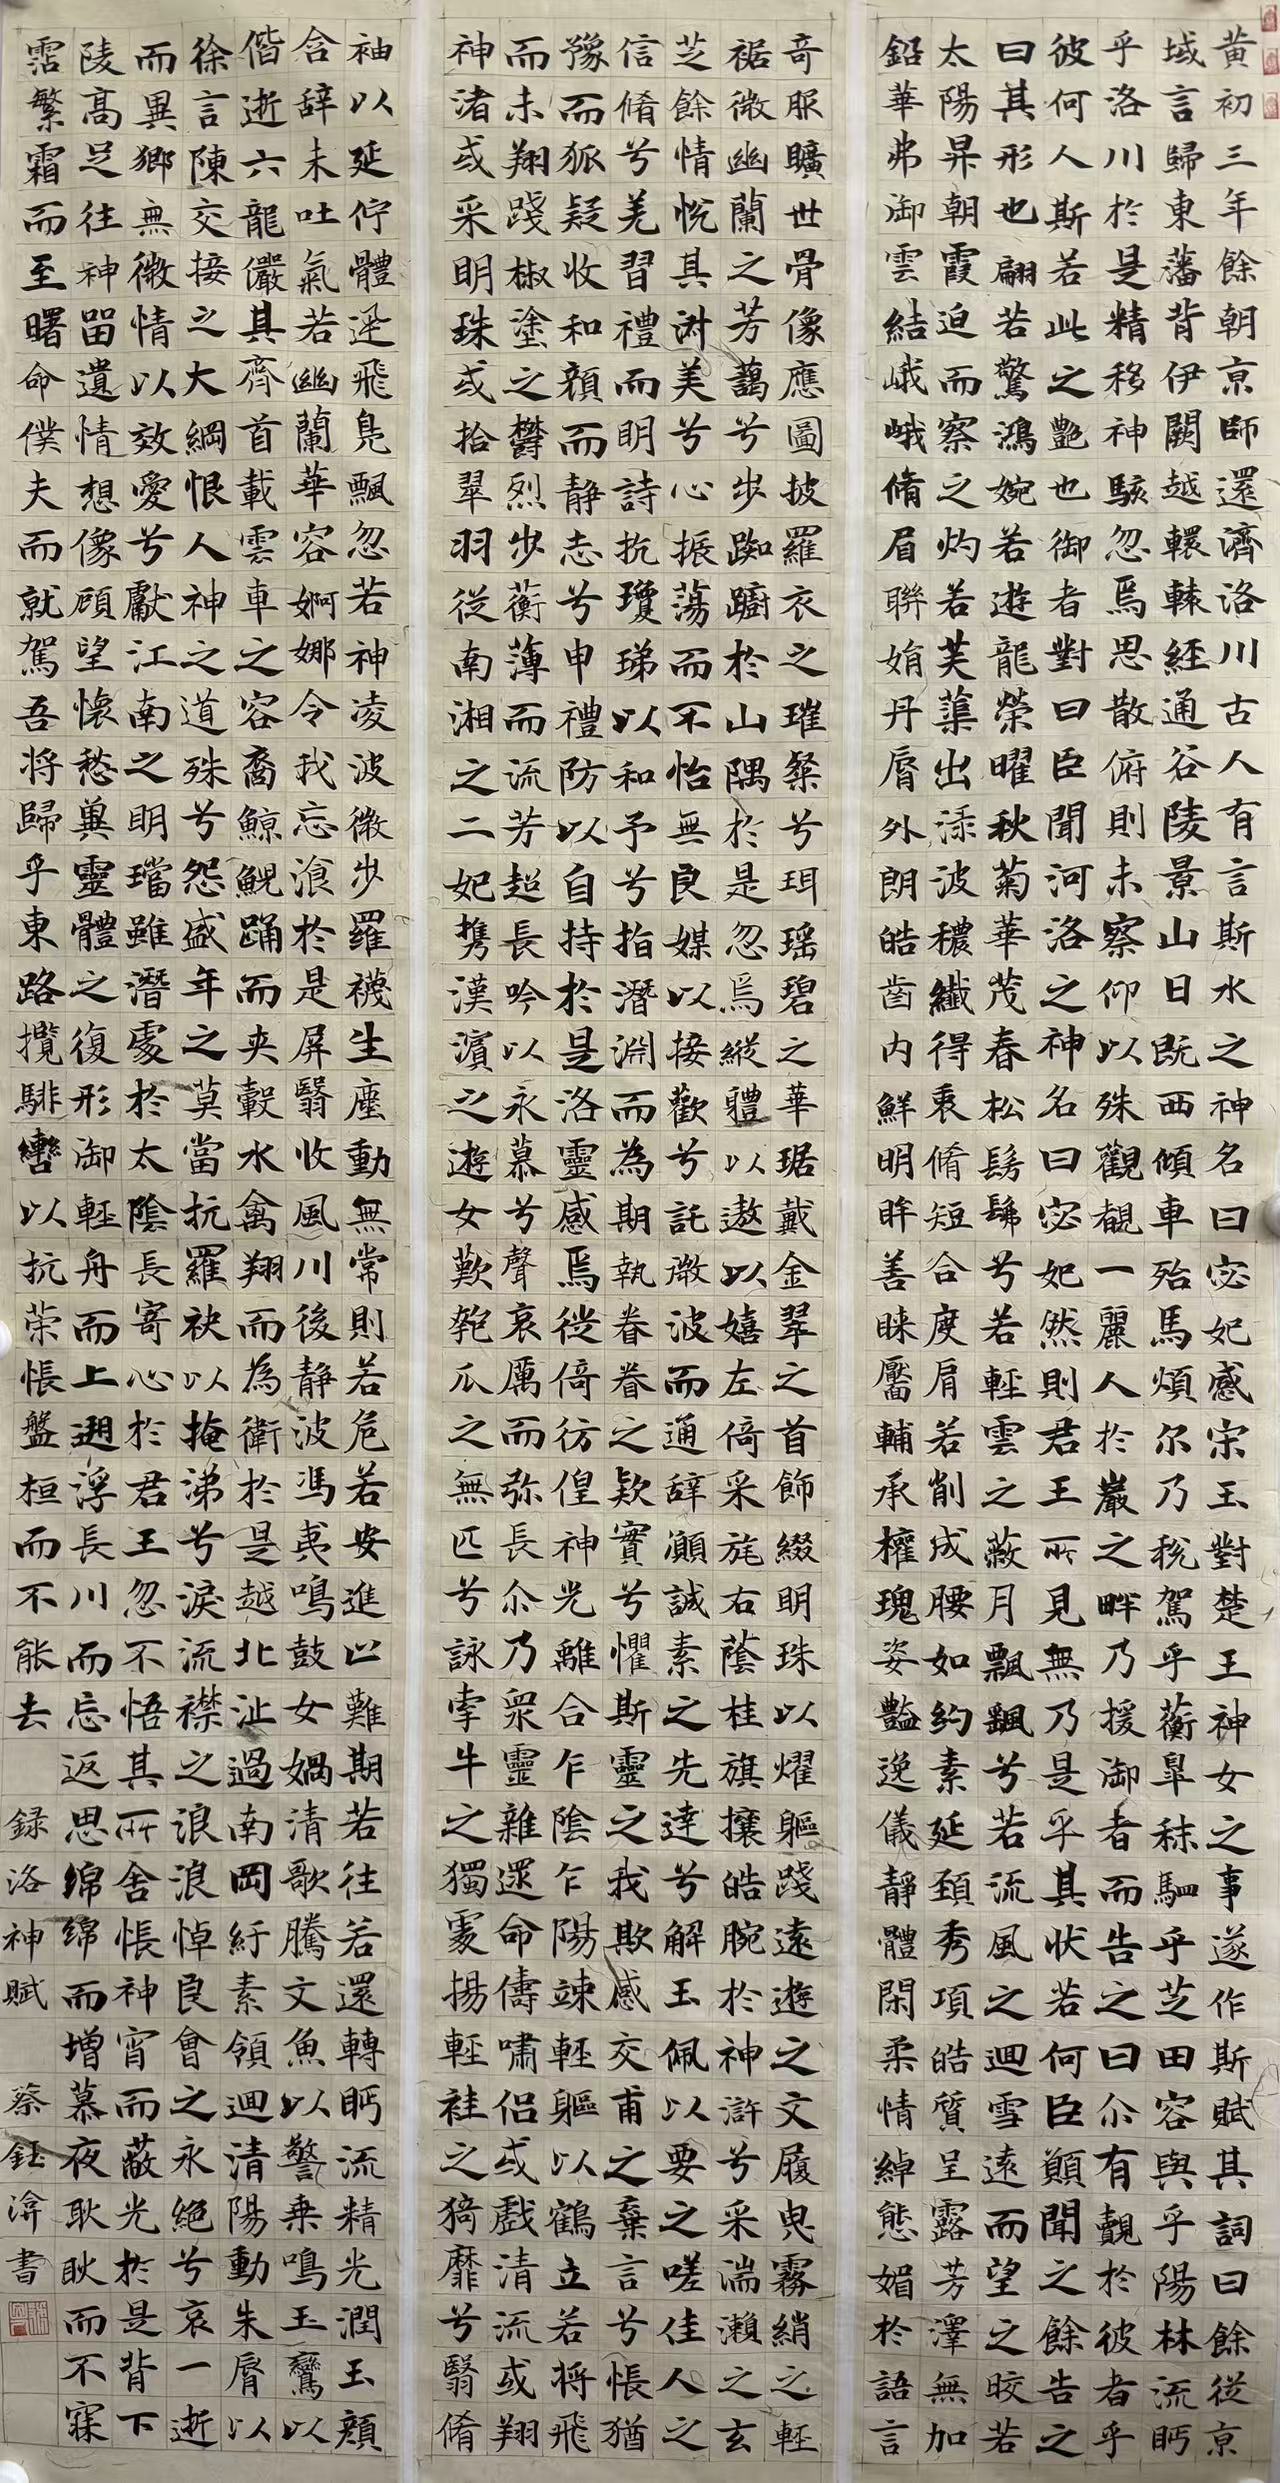 黄初三年餘朝京師還濟洛川古人有言斯水之神名曰宓妃感宋玉對楚王神女之事遂作斯賦其詞曰餘從京
域言歸東藩背伊闕越轘轅經通谷陵景山日既西傾車殆馬煩尔乃税駕乎蘅皐秣駟乎芝田容與乎陽林流眄
乎洛川於是精移神駭忽焉思散俯則未察仰以殊觀覩一麗人於巖之畔乃援御者而告之曰尒有覿於彼者乎
彼何人斯若此之艷也御者對曰臣聞河洛之神名曰宓妃然則君王所見無乃是乎其状若何臣願聞之餘告之
曰其形也翩若驚鴻婉若遊龍榮曜秋菊華茂春松髣髴兮若輕雲之蔽月飄飖兮若流風之迴雪遠而望之皎若
太陽昇朝霞迫而察之灼若芙蕖出渌波穠纖得衷脩短合度肩若削成腰如約素延頸秀項皓質呈露芳澤無加
鉛華弗御雲結峨峨脩眉聯娟丹脣外朗皓齒内鮮明眸善睞靨輔承權瑰姿豔逸儀靜體閑柔情綽態媚於語言
奇服曠世骨像應圖披羅衣之璀粲兮珥瑶碧之華琚戴金翠之首飾綴明珠以耀軀踐遠遊之文履曳霧綃之輕
裾微幽蘭之芳藹兮步踟躕於山隅於是忽焉縱體以遨以嬉左倚采旄右蔭桂旗攘皓腕於神滸兮采湍瀨之玄
芝餘情悦其淑美兮心振蕩而不怡無良媒以接歡兮託微波而通辭願誠素之先達兮解玉佩以要之嗟佳人之
信脩兮羌習禮而明詩抗瓊珶以和予兮指潛淵而為期執眷眷之款實兮懼斯靈之我欺感交甫之棄言兮悵猶
豫而狐疑收和顔而静志兮申禮防以自持於是洛靈感焉徙倚彷徨神光離合乍陰乍陽竦輕軀以鶴立若将飛
而未翔踐椒塗之欝烈步蘅薄而流芳超長吟以永慕兮聲哀厲而弥長尒乃衆靈雜遝命儔嘯侣或戲清流或翔
神渚或采明珠或拾翠羽從南湘之二妃攜漢濱之遊女歎匏瓜之無匹兮詠牽牛之獨處揚輕袿之猗靡兮翳脩
袖以延佇體迅飛鳧飄忽若神凌波微步羅襪生塵動無常則若危若安進止難期若往若還轉眄流精光潤玉顔
含辭未吐氣若幽蘭華容婀娜令我忘飡於是屏翳收風川後静波馮夷鳴鼓女媧清歌騰文魚以警乗鳴玉鸞以
偕逝六龍儼其齊首載雲車之容裔鯨鯢踊而夾轂水禽翔而為衛於是越北沚過南岡紆素領迴清陽動朱脣以
徐言陳交接之大綱恨人神之道殊兮怨盛年之莫當抗羅袂以掩涕兮淚流襟之浪浪悼良會之永絶兮哀一逝
而異鄉無微情以效愛兮獻江南之明璫雖潛處於太陰長寄心於君王忽不悟其所舍悵神宵而蔽光於是背下
陵高足往神留遺情想像顧望懷愁冀靈體之復形御輕舟而上遡浮長川而忘返思绵绵而增慕夜耿耿而不寐
霑繁霜而至曙命僕夫而就駕吾将歸乎東路攬騑轡以抗策悵盤桓而不能去 録洛神賦 蔡鈺渰書